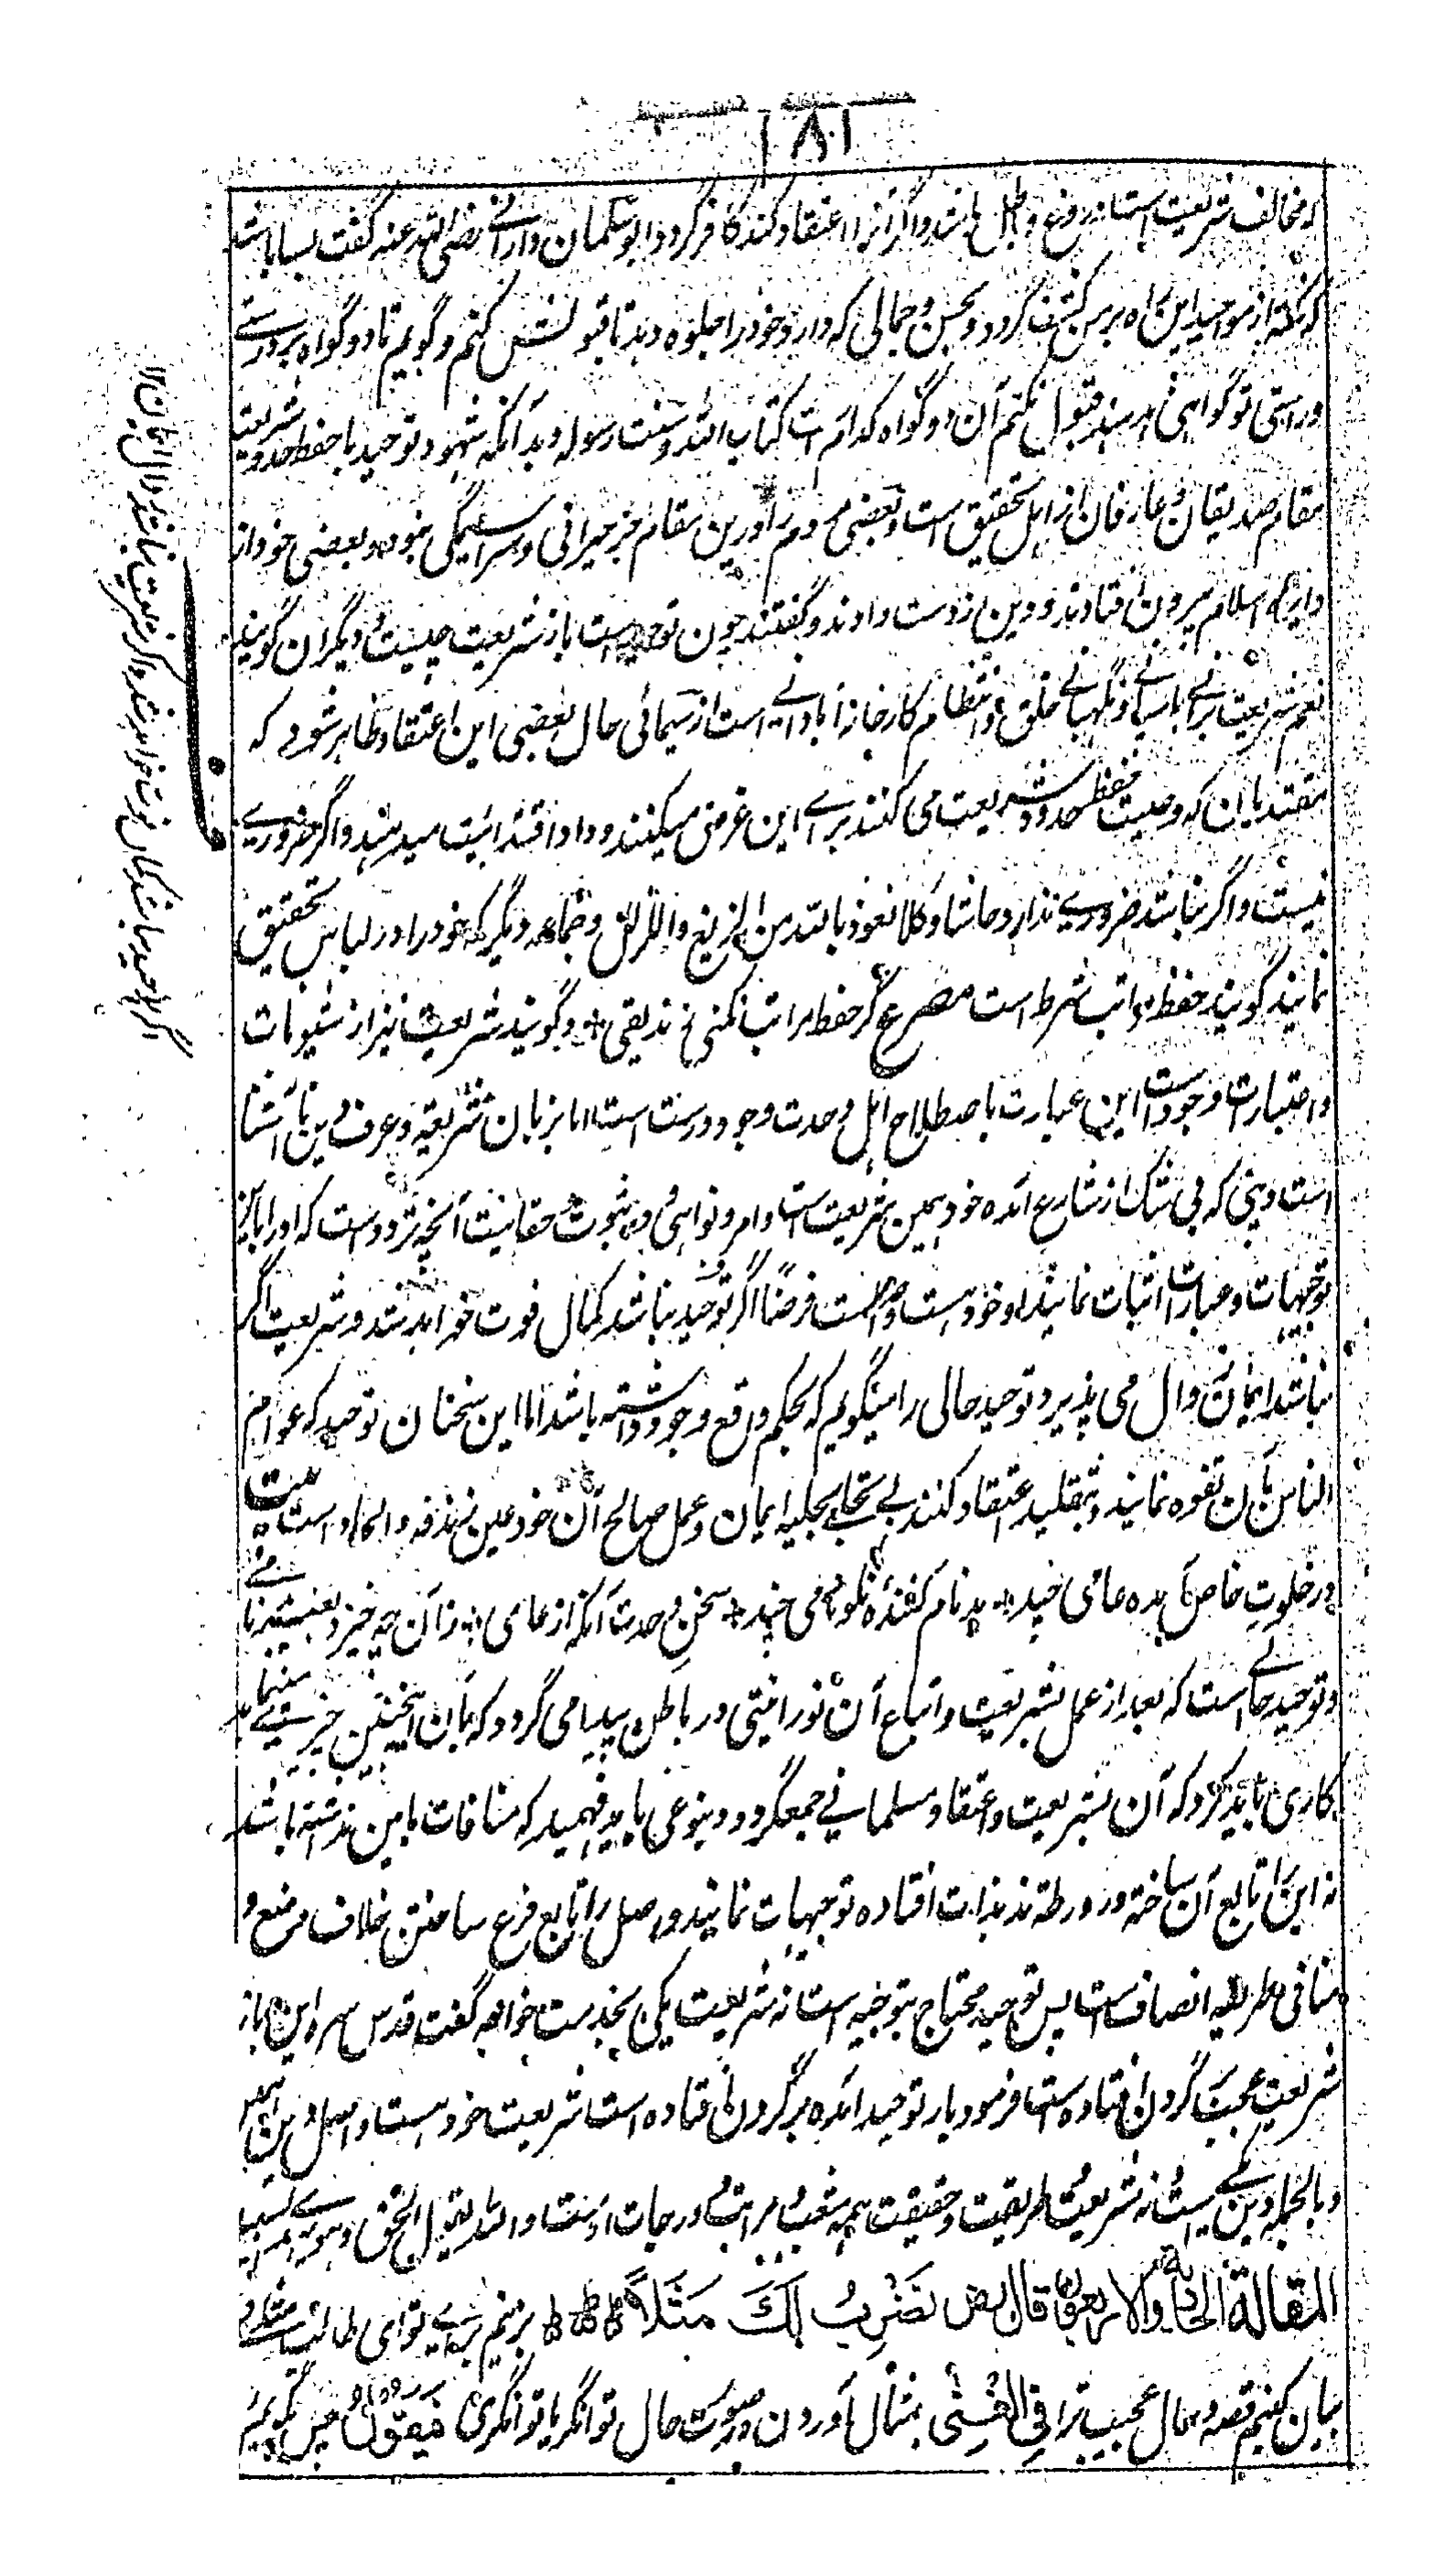 ۱۸۱
که مخالف شریعت است دروغ و باطل باشد و اگر آنرا اعتقاد کند کافر گردد ابوسلیمان دارانی رضی الله عنه گفت بسا باشد
که نکته از مواجید این راه بر من کشف گردد و بحسن و جمالی که دارد خود را جلوه دهد تا قبولش کنم و گویم تا دو گواه بر درستی
و راستی تو گواهی ندهند قبول نکنم آن دو گواه کدام است کتاب الله و سنت رسوله و بدآنکه شهود توحید با حفظ حدود شریعت
مقام صدیقان و عارفان از اهل تحقیق است و بعضی مردم را درین مقام جز حیرانی و سراسیمگی نبود و بعضی خود از
دایره اسلام بیرون افتادند و دین از دست دادند و گفتند چون توحید است باز شریعت چیست و دیگران گویند
نعم شریعت برای پاسبانی و نگهبانی خلق و انتظام کارخانه آبادانی است از سیمائی حال بعضی این اعتقاد ظاهر شود که
مقتدیان که وصیت حفظ حدود شریعت می کنند برای این غرض میکنند و داد اقتدائیت میدهند و اگر ضروری
نیست و اگر نباشد ضروری ندارد حاشا و کلا نعوذ بالله من الزیغ والزلل و جماعه دیگر که خود را در لباس تحقیق
نمایند گویند حفظ مراتب شرط است مصرع گر حفظ مراتب نکنی زندیقی + و گویند شریعت نیز از شیونات
و اعتبارات وجود است این عبارت باصطلاح اهل وحدت وجود درست است اما بزبان شریعة و عرف دین ناآشنا
است دینی که بی شک از شارع آمده خود همین شریعت است و امر و نواهی و ثبوت حقانیت آنچه تردد است که او را باین
توجیهات و عبارات اثبات نمایند او خود هست و اصل است فرضًا اگر توحید نباشد کمال فوت خواهد شد و شریعت اگر
نباشد ایمان زوال می پذیرد و توحید حالی را میگویم که بحکم واقع وجود داشته باشد اما این سخنان توحید که عوام
الناس بآن تفوه نمایند و بتقلید اعتقاد کنند بی تجلی بحلیه ایمان و عمل صالح آن خود عین زندقه و الحاد است بیت
در خلوت خاص آمده عامی چند + بدنام کنندهٔ نکونامی چند + سخن وحدت آنکه از عامی + زان چه خیزد بغیر بدنامی
و توحید حالی است که بعد از عمل شریعت و اتباع آن نورانیتی در باطن پیدا می گردد که بآن اینچنین چیزی مینماید
کاری باید کرد که آن بشریعت و اعتقاد مسلمانی جمع گردد و بنوعی باید فهمید که منافات باین نداشته باشد
نه این را تابع آن ساخته در ورطه تذبذب افتاده توجیهات نمایند و اصل را تابع فرع ساختن خلاف وضع و
منافی طریقه انصاف است پس توحید محتاج بتوجیه است نه شریعت یکی بخدمت خواجه گفت قدس سره این بار
شریعت عجب بر گردن افتاده است فرمود بار توحید آمده بر گردن افتاده است شریعت خود هست و اصل دین همین
و بالجمله دین یکی است نه شریعت و طریقت و حقیقت همه شعب و مراتب و درجات اوست والله یقول الحق و هو یهدی السبیل
المقالة الحادیة والاربعون قال رض نَضْرِبُ لَكَ مَثَلًا میزنیم برای تو ای طالب مثلی و
بیان کنیم قصه و حال عجیب ترا فِی الغِنٰی بمثال آوردن در صورت حال توانگر یا توانگری فَنَقُولُ پس میگویم